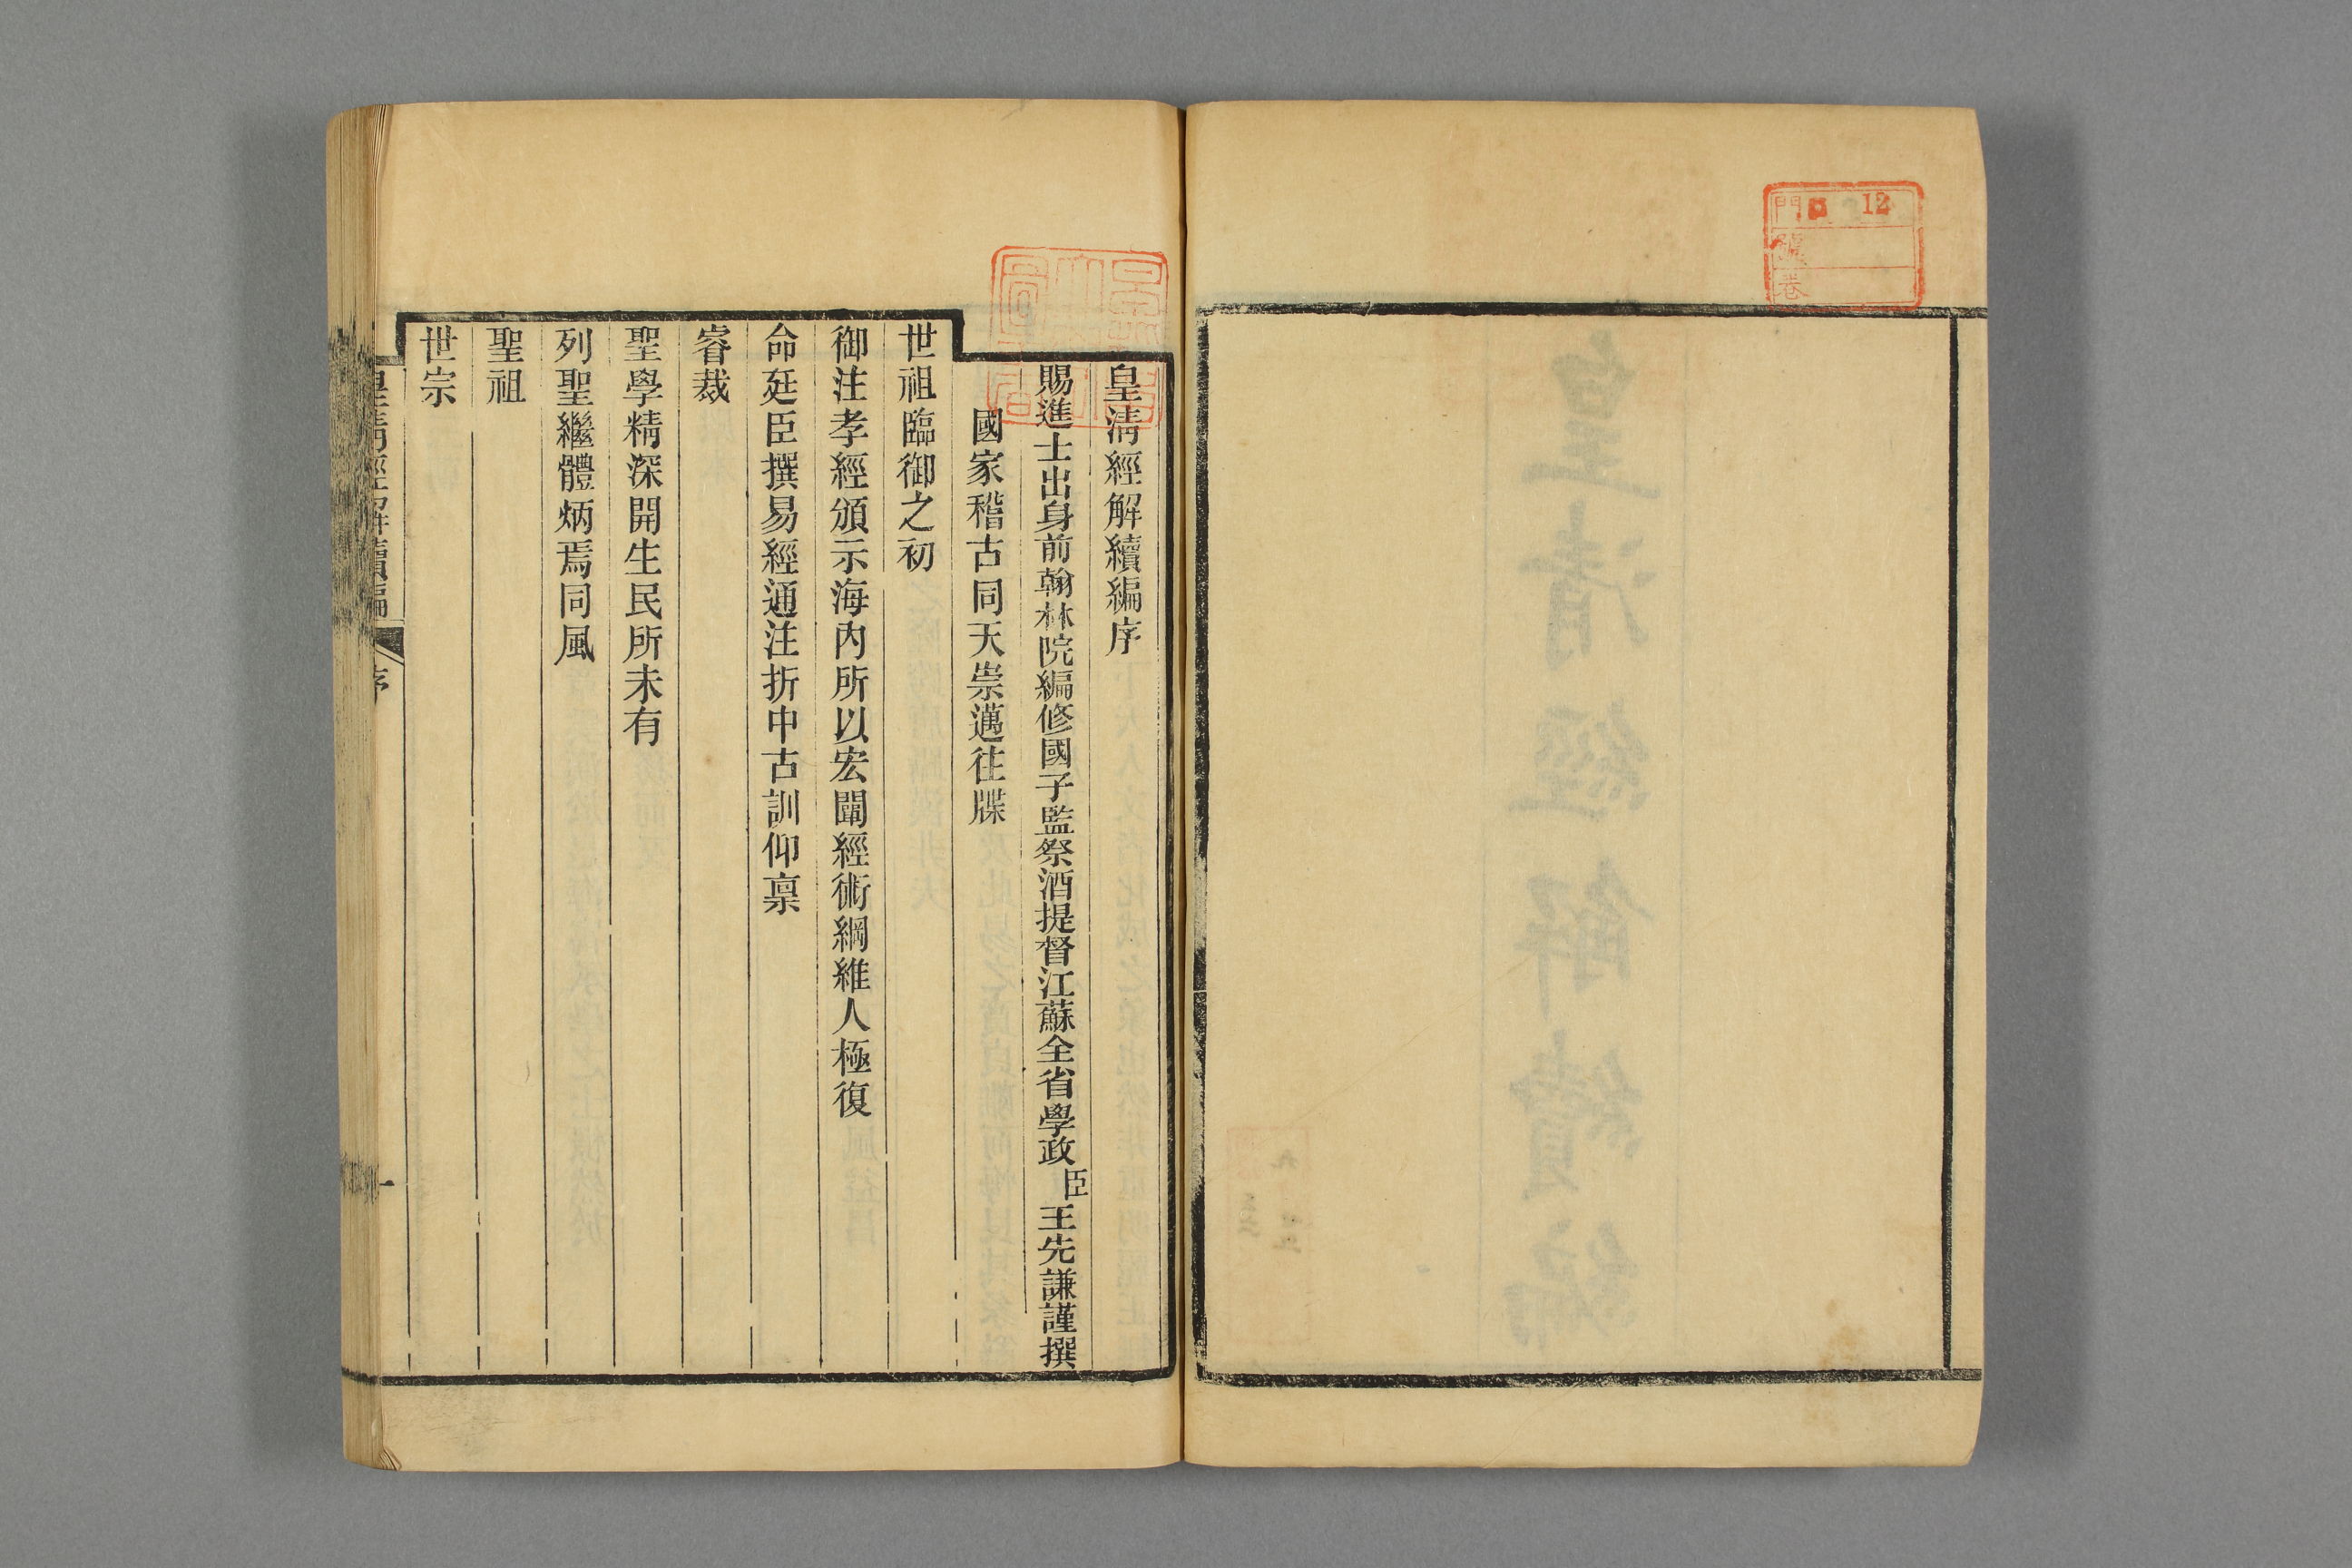 門 12
號
卷
皇清經解續編序
賜進士出身前翰林院編修國子監祭酒提督江蘇全省學政臣王先謙謹撰
國家稽古同天崇邁往牒
世祖臨御之初
御注孝經頒示海內所以宏闡經術綱維人極復
命廷臣撰易經通注折中古訓仰稟
睿裁
聖學精深開生民所未有
列聖繼體炳焉同風
聖祖
世宗
皇清經解續編 序 一